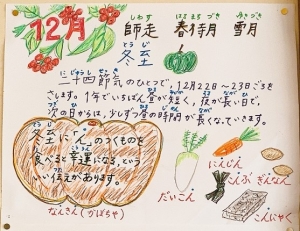 12月
しわす はるまちづき ゆきづき
師走 春待月 雪月
とうじ
冬至
にじゅうしせっき
二十四節気のひとつで、12月22日〜23日ごろを
さします。1年でいちばん昼が短く、夜が長い日で、
次の日からは、少しずつ昼の時間が長くなっていきます。
とうじ
冬至に「ん」のつくものを
食べると幸運になる、という
いい伝えがあります。
なんきん(かぼちゃ)
だいこん
にんじん
こんぶ
ぎんなん
こんにゃく